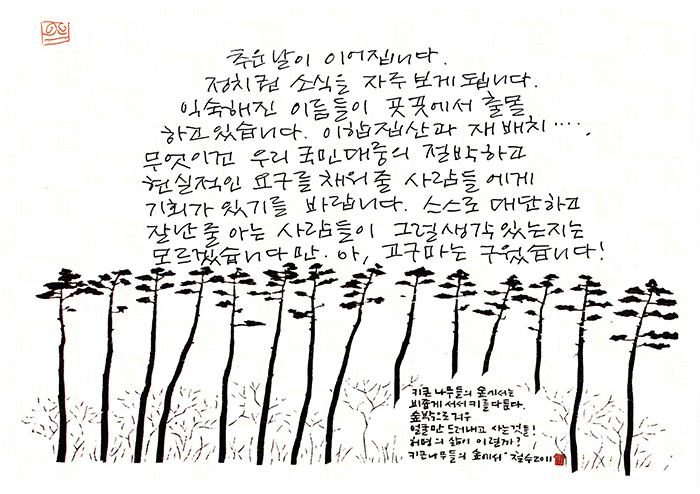 추운 날이 이어집니다.
정치권 소식을 자주 보게 됩니다.
익숙해진 이름들이 곳곳에서 출몰
하고 있습니다. 이합집산과 재배치....
무엇이건 우리 국민대중의 절박하고
현실적인 요구를 채워줄 사람들에게
기회가 있기를 바랍니다. 스스로 대단하고
잘난 줄 아는 사람들이 그럴 생각 있는지는
모르겠습니다만. 아, 고구마는 구웠습니다!
키큰 나무들의 숲에서는
비좁게 서서 키를 다툰다.
숲 밖으로 겨우
얼굴만 드러내고 사는 것들!
허명의 삶이 이럴까?
키큰 나무들의 숲에서 · 철수 2011